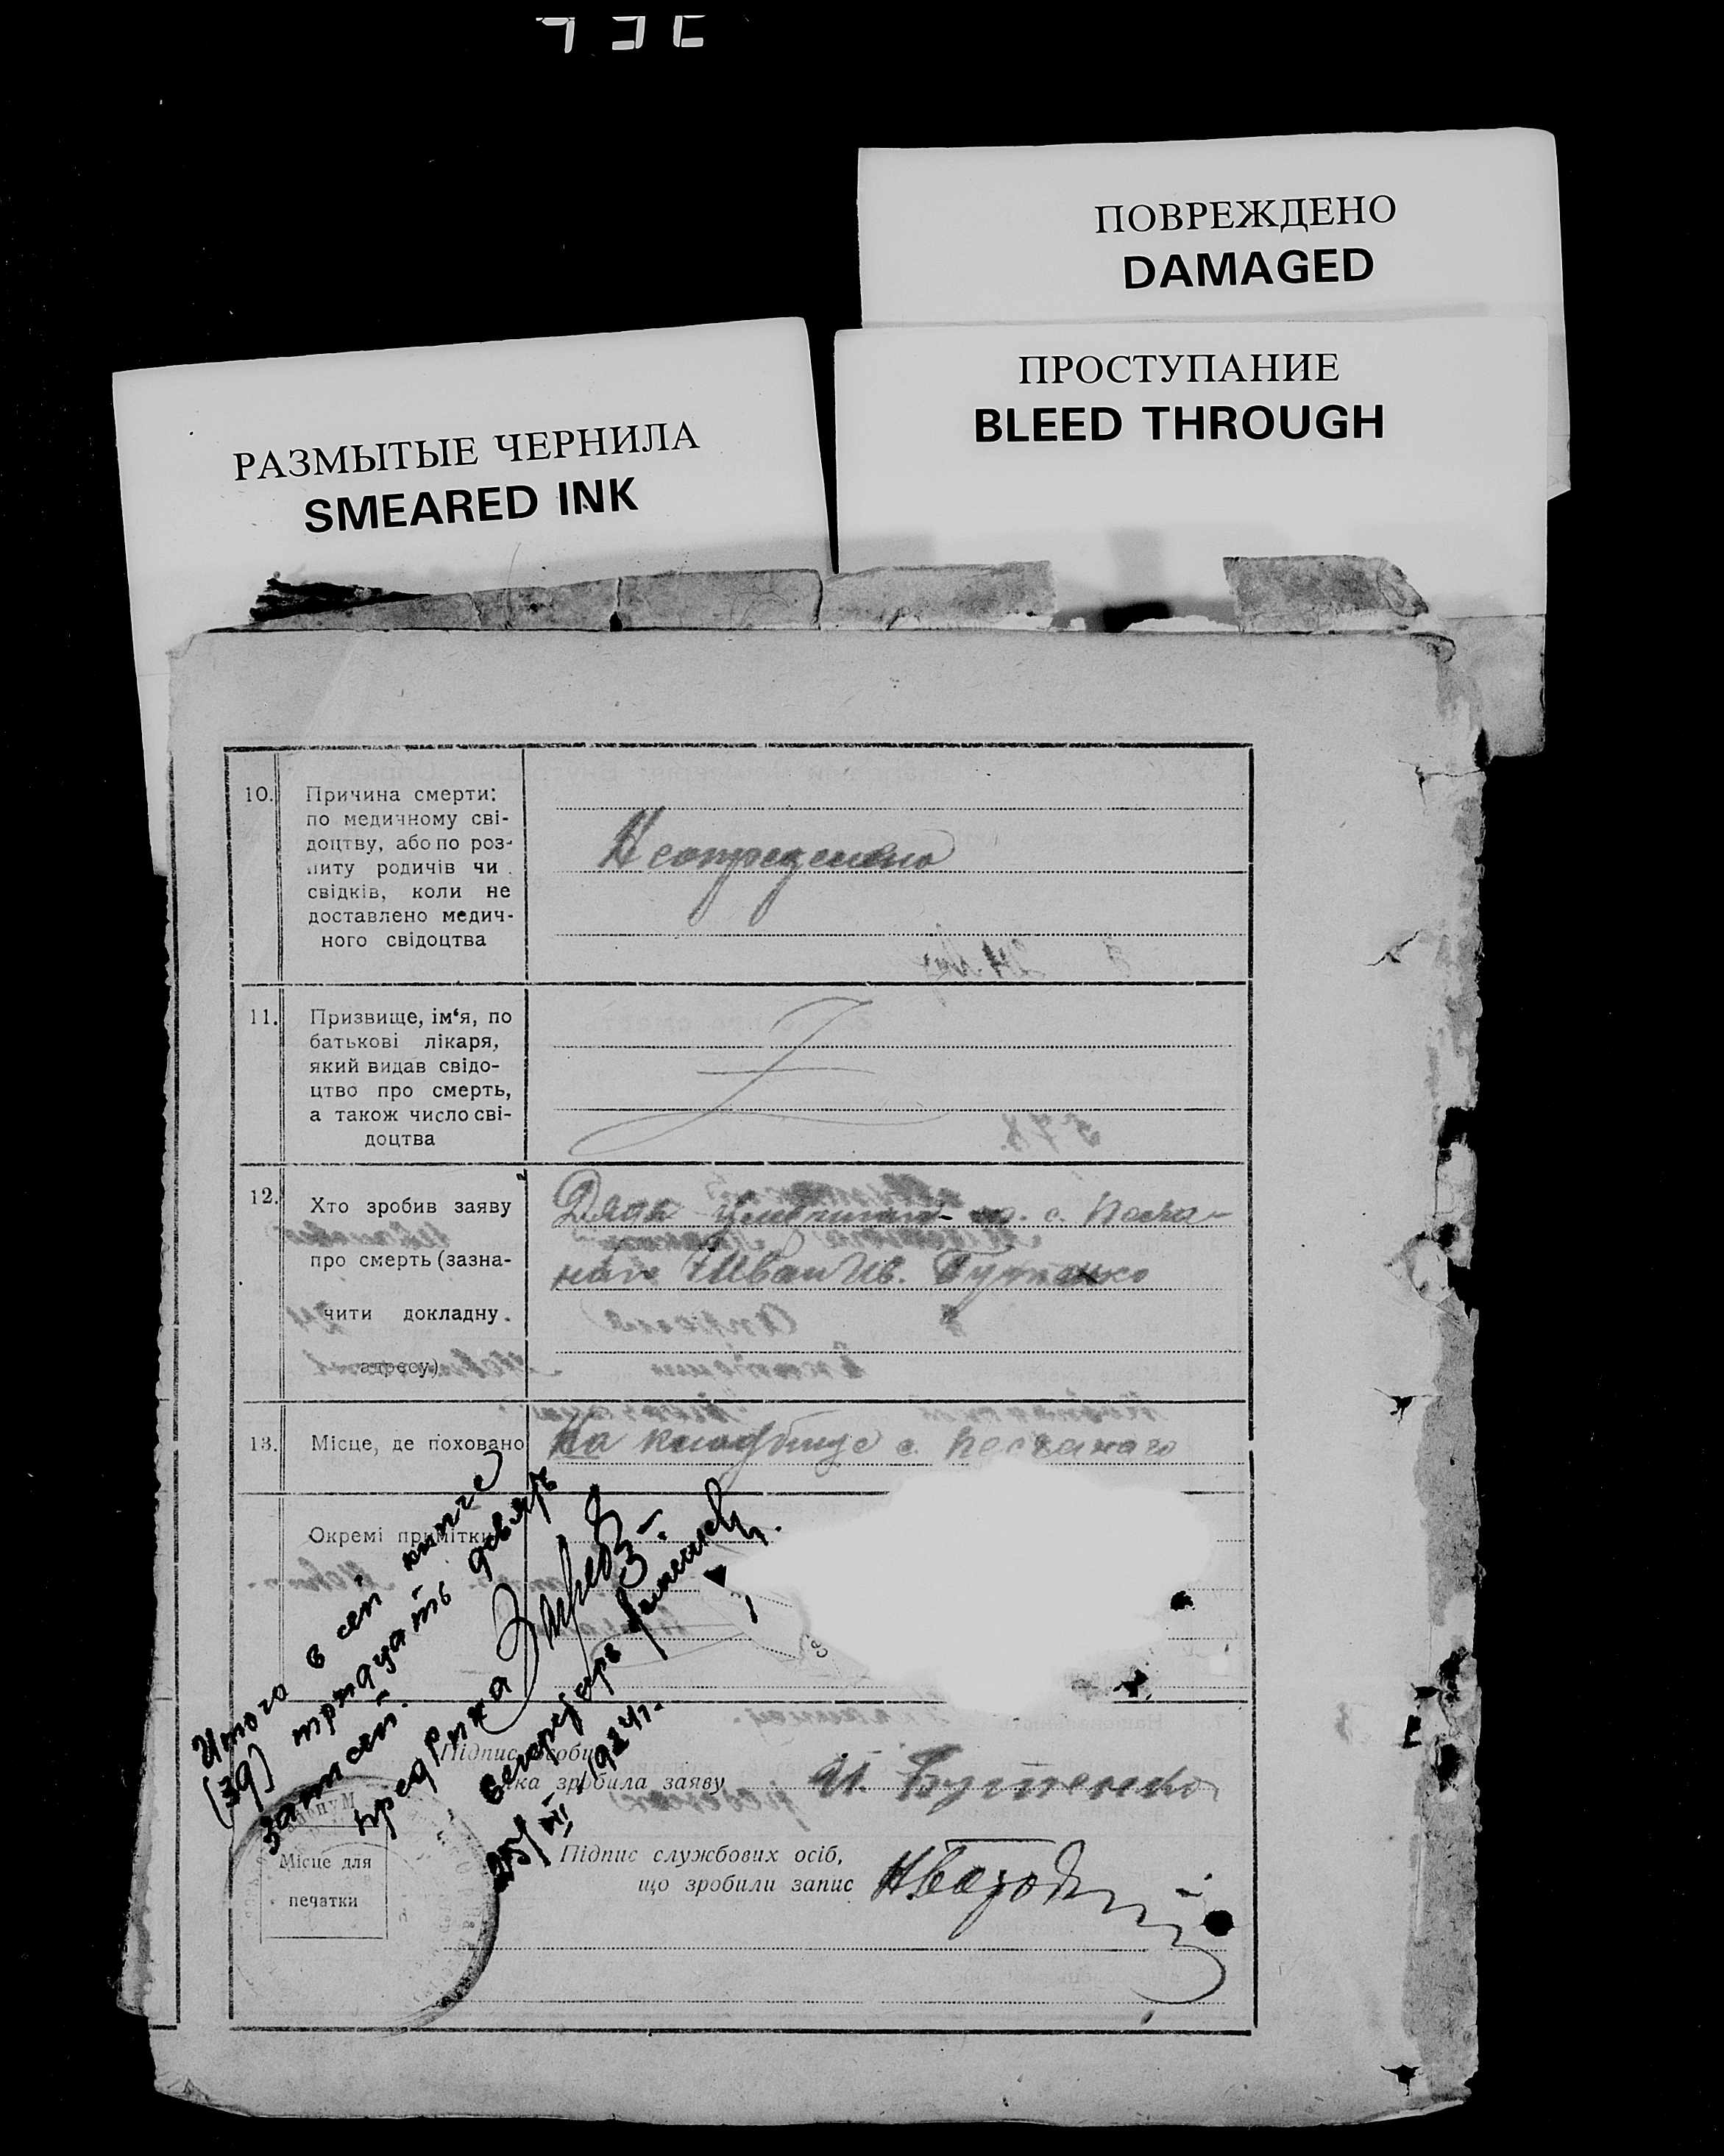 ПОВРЕЖДЕНО
DAMAGED
ПРОСТУПАНИЕ
BLEED THROUGH
РАЗМЫТЫЕ ЧЕРНИЛА
SMEARED INK
10. Причина смерти:
по медичному сві-
доцтву, або по роз-
питу родичів чи
свідків, коли не
доставлено медич-
ного свідоцтва
Неопределено
11. Призвище, ім‘я, по
батькові лікаря,
який видав свідо-
цтво про смерть,
а також число сві-
доцтва
12. Хто зробив заяву
про смерть (зазна-
чити докладну
адресу)
Дядя с. Песча-
Иван Ив. Бутенко
13. Місце, де поховано
На кладбище с. Песчаного
Окремі примітки
Итого в сей книге
(39) тридцать девять
записей.
Предрика
Секретарь
25/III 1924 г.
Підпис особи
яка зробила заяву
И. Бутенко
Підпис службових осіб,
що зробили запис
Місце для
печатки